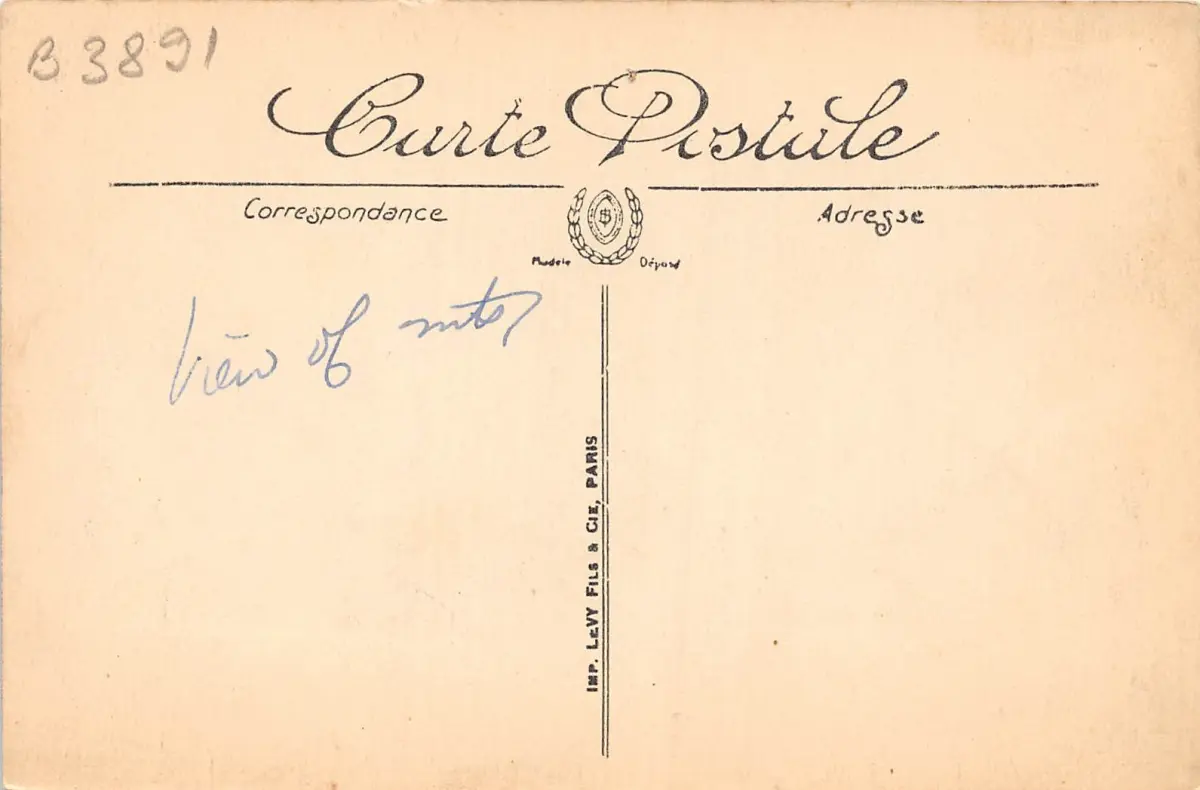 B 3891
Carte Postale
Correspondance
Adresse
Modèle Déposé
View of mts
IMP. LEVY FILS & CIE, PARIS